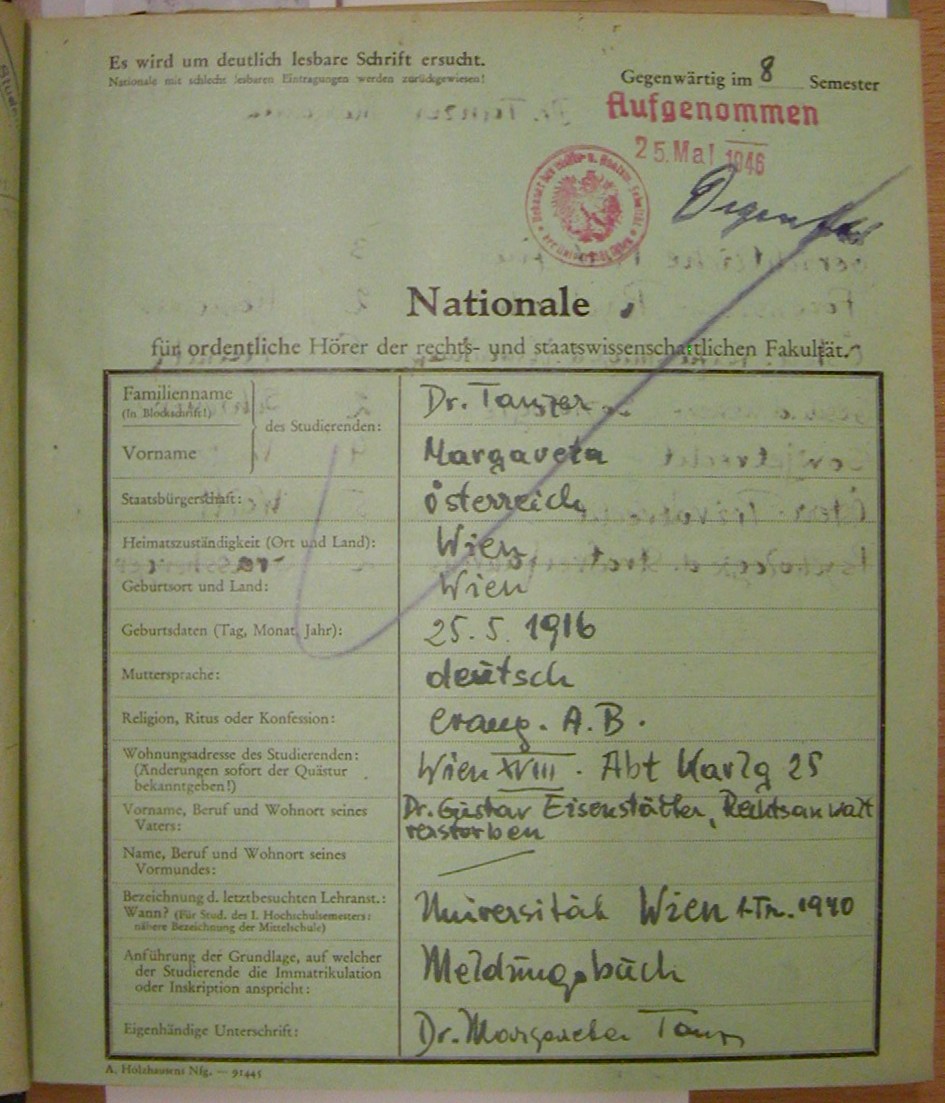 Es wird um deutlich lesbare Schrift ersucht.
Nationale mit schlecht lesbaren Eintragungen werden zurückgewiesen!
Gegenwärtig im 8 Semester
Aufgenommen
25. Mai 1946
Nationale
für ordentliche Hörer der rechts- und staatswissenschaftlichen Fakultät.
Familienname
(In Blockschrift!)
des Studierenden:
Dr. Tanzer
Vorname
Margareta
Staatsbürgerschaft: österreich
Heimatszuständigkeit (Ort und Land): Wien
Geburtsort und Land: Wien
Geburtsdaten (Tag, Monat, Jahr): 25. 5. 1916
Muttersprache: deutsch
Religion, Ritus oder Konfession: evang. A. B.
Wohnungsadresse des Studierenden:
(Änderungen sofort der Quästur
bekanntgeben!)
Wien XVIII. Abt Karlg 25
Vorname, Beruf und Wohnort seines
Vaters:
Dr. Gustav Eisenstädter, Rechtsanwalt
verstorben
Name, Beruf und Wohnort seines
Vormundes:
Bezeichnung d. letztbesuchten Lehranst.:
Wann? (Für Stud. des I. Hochschulsemesters:
nähere Bezeichnung der Mittelschule)
Universität Wien 1. Tr. 1940
Anführung der Grundlage, auf welcher
der Studierende die Immatrikulation
oder Inskription anspricht:
Meldungsbuch
Eigenhändige Unterschrift: Dr. Margareta Tanzer
A. Holzhausens Nfg. — 91445